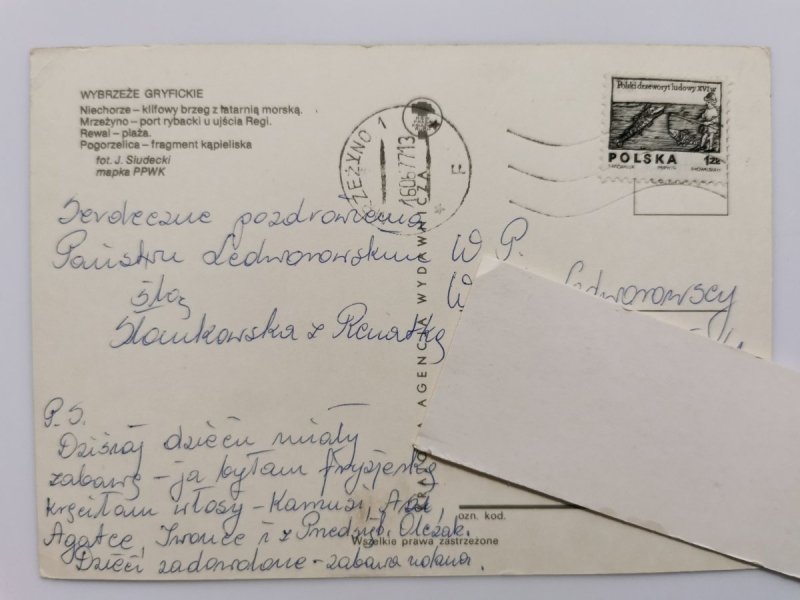 WYBRZEŻE GRYFICKIE
Niechorze – klifowy brzeg z latarnią morską.
Mrzeżyno – port rybacki u ujścia Regi.
Rewal – plaża.
Pogorzelica – fragment kąpieliska
fot. J. Siudecki
mapka PPWK
RZEŻYNO 1
16.06.77.13
Polski drzeworyt ludowy XVI w
POLSKA 1zł
Serdeczne pozdrowienia
Państwu Ledworowskim
ślą
Stankowska z Renatką
P.S.
Dzisiaj dzieci miały
zabawę – ja byłam fryzjerką
kręciłam włosy – Kamusi, Asi
Agatce Iwonce i z Olczak.
Dzieci zadowolone – zabawa udana.
W. P.
W Ledworowscy
AGENCJA WYDAWNICZA
ozn. kod.
Wszelkie prawa zastrzeżone